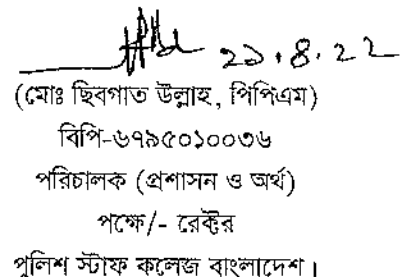 ২১.৪.২২
(মোঃ ছিবগাত উল্লাহ, পিপিএম)
বিপি-৬৭৯৫০১০০৩৬
পরিচালক (প্রশাসন ও অর্থ)
পক্ষে/- রেক্টর
পুলিশ স্টাফ কলেজ বাংলাদেশ।